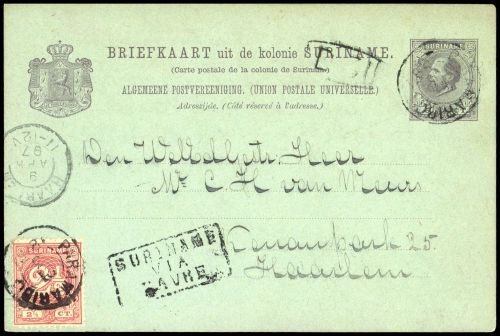 BRIEFKAART uit de kolonie SURINAME.
(Carte postale de la colonie de Suriname)
ALGEMEENE POSTVEREENIGING. (UNION POSTALE UNIVERSELLE.)
Adreszijde. (Côté réservé à l'adresse.)
SURINAME
Den WelEdelgestr Heer
Mr. C. H van Meurs
Kenaupark 25.
Haarlem
SURINAME
VIA
HAVRE
HAARLEM
9
APR
97
11-12V
SURINAME
2½
2½ CT.
PARAMARIBO